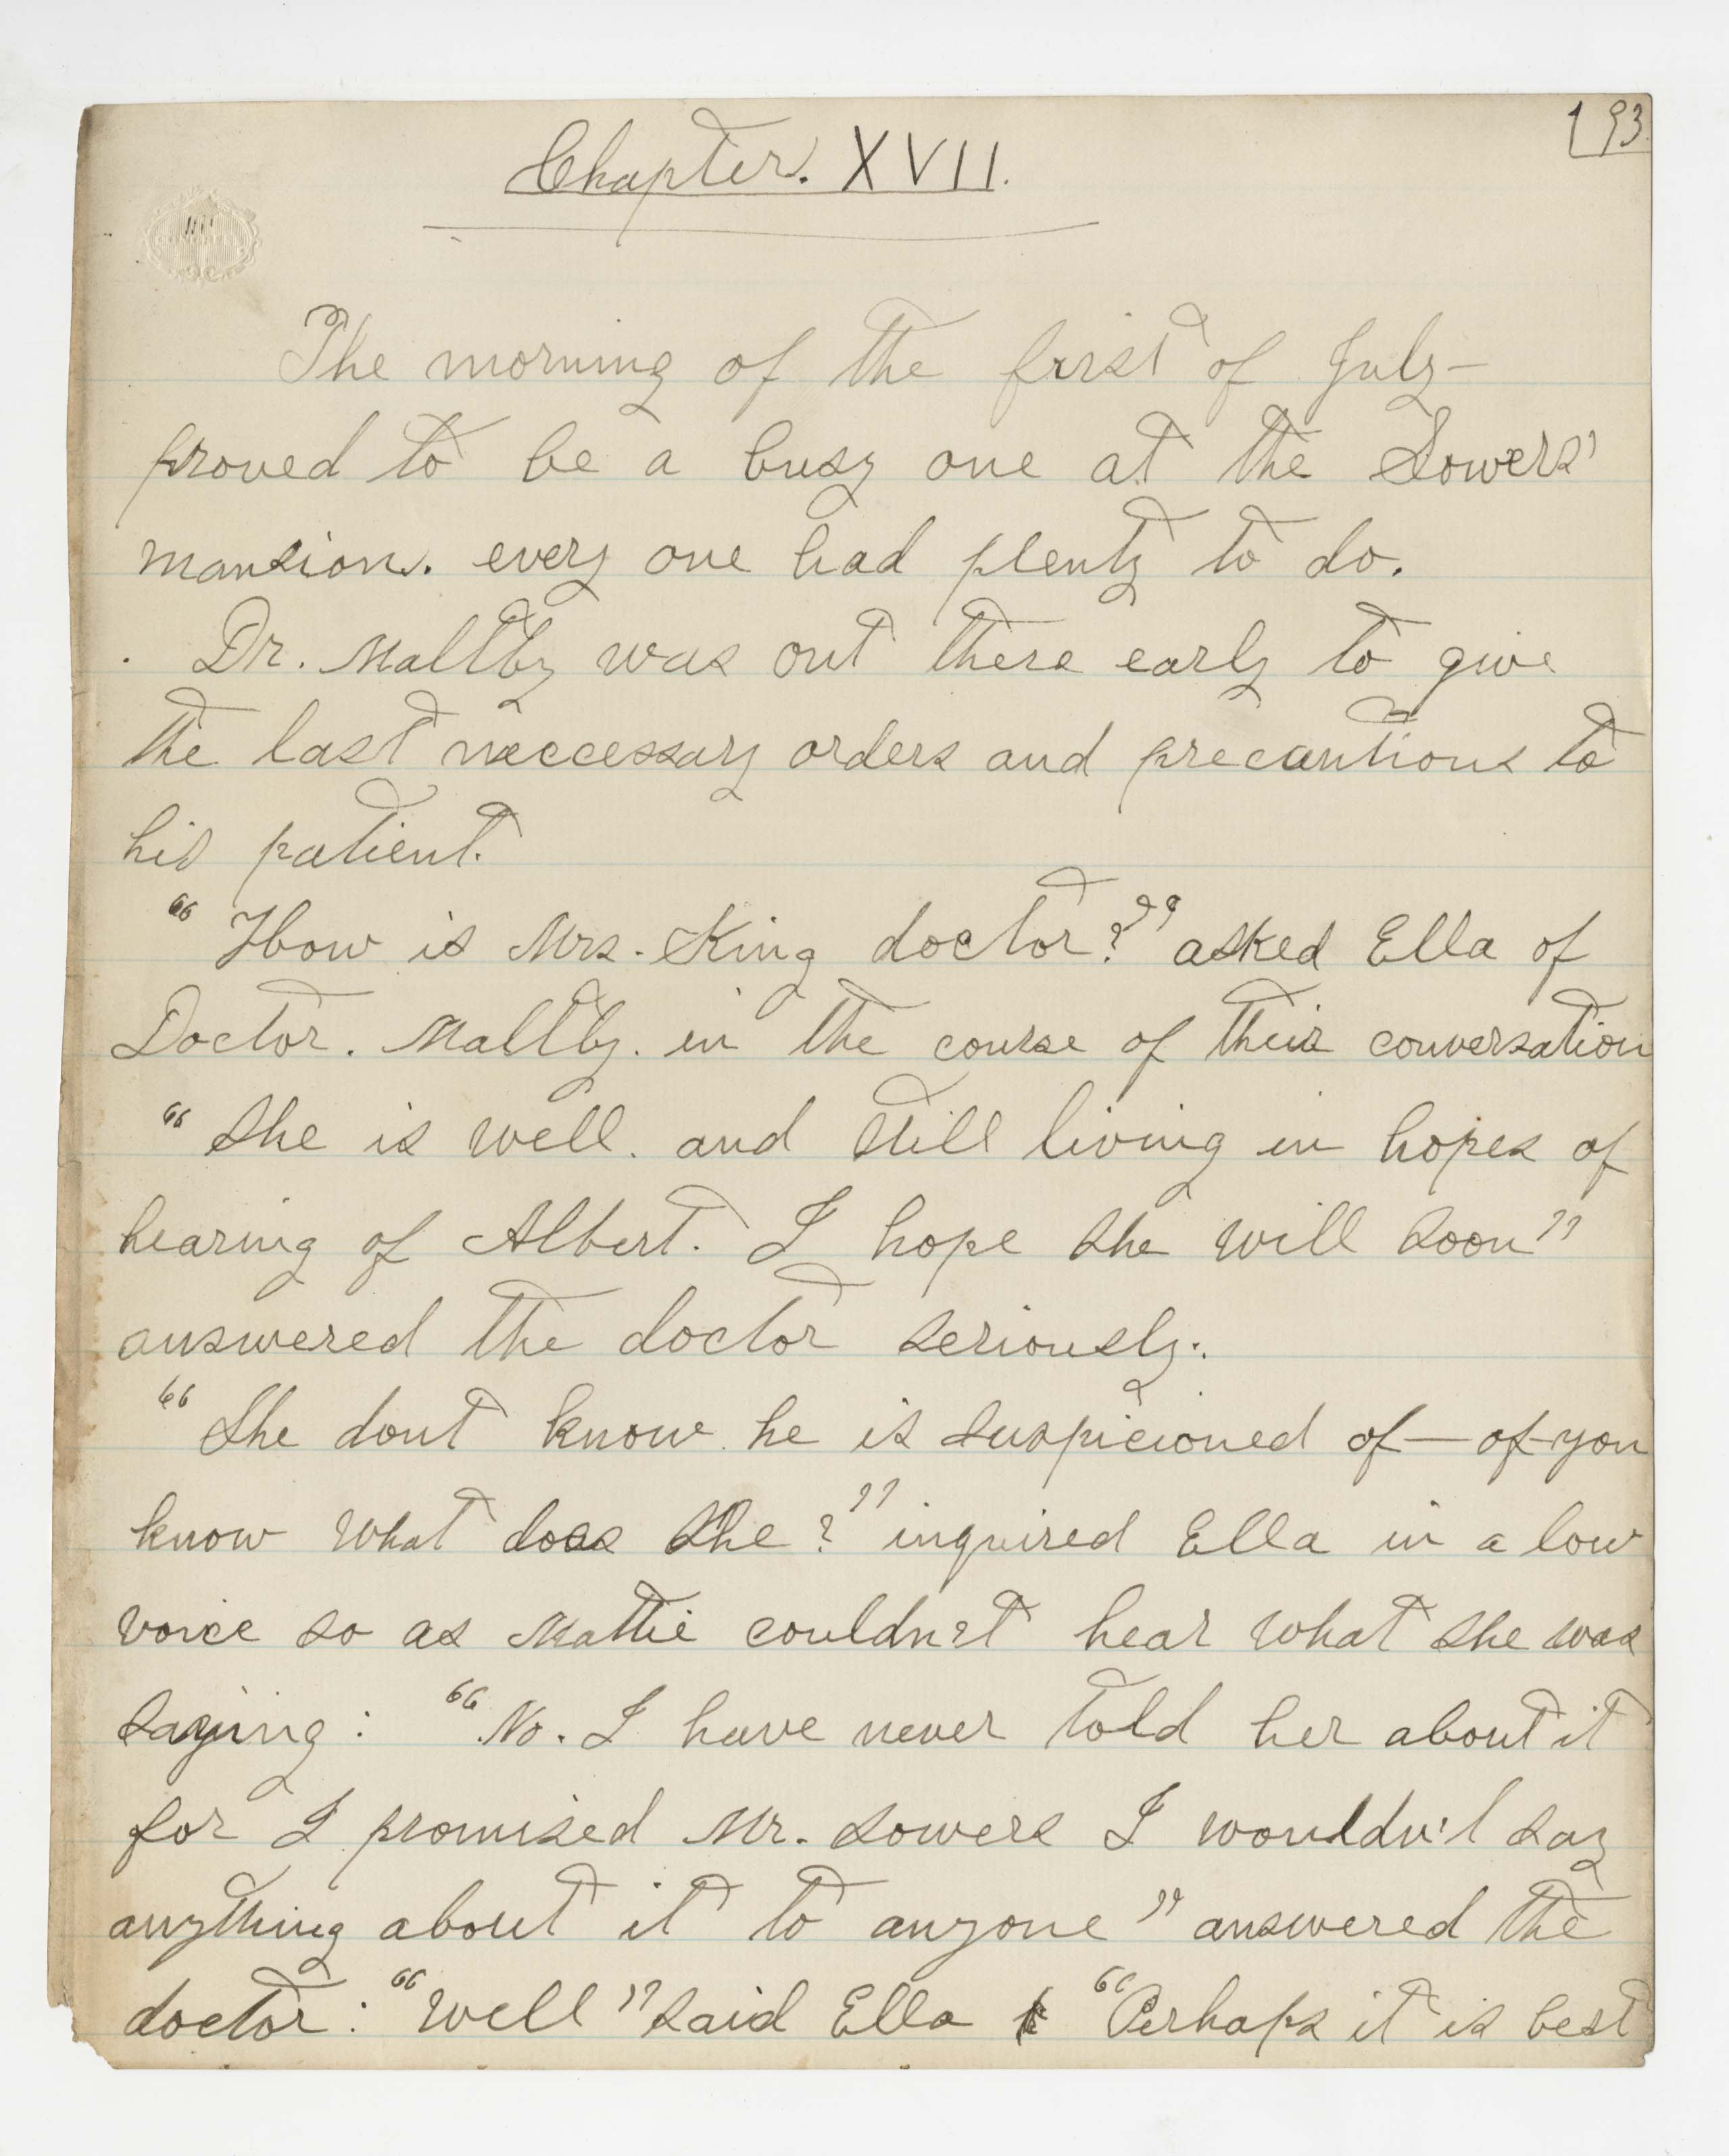 193
Chapter. XVII.
The morning of the first of July-
proved to be a busy one at the Sowers'
mansion. every one had plenty to do.
Dr. Maltby was out there early to give
the last neccessary orders and precautions to
his patient.
"How is Mrs. King doctor?" asked Ella of
Doctor. Maltby. in the course of their conversation
"She is well. and still living in hopes of
hearing of Albert. I hope she will soon"
answered the doctor seriously.
"She dont know he is suspicioned of — of-you
know what does she?" inquired Ella in a low
voice so as Mattie couldn't hear what she was
saying: "No. I have never told her about it
for I promised Mr. Sowers I wouldn't say
anything about it to anyone" answered the
doctor: "Well" said Ella "Perhaps it is best